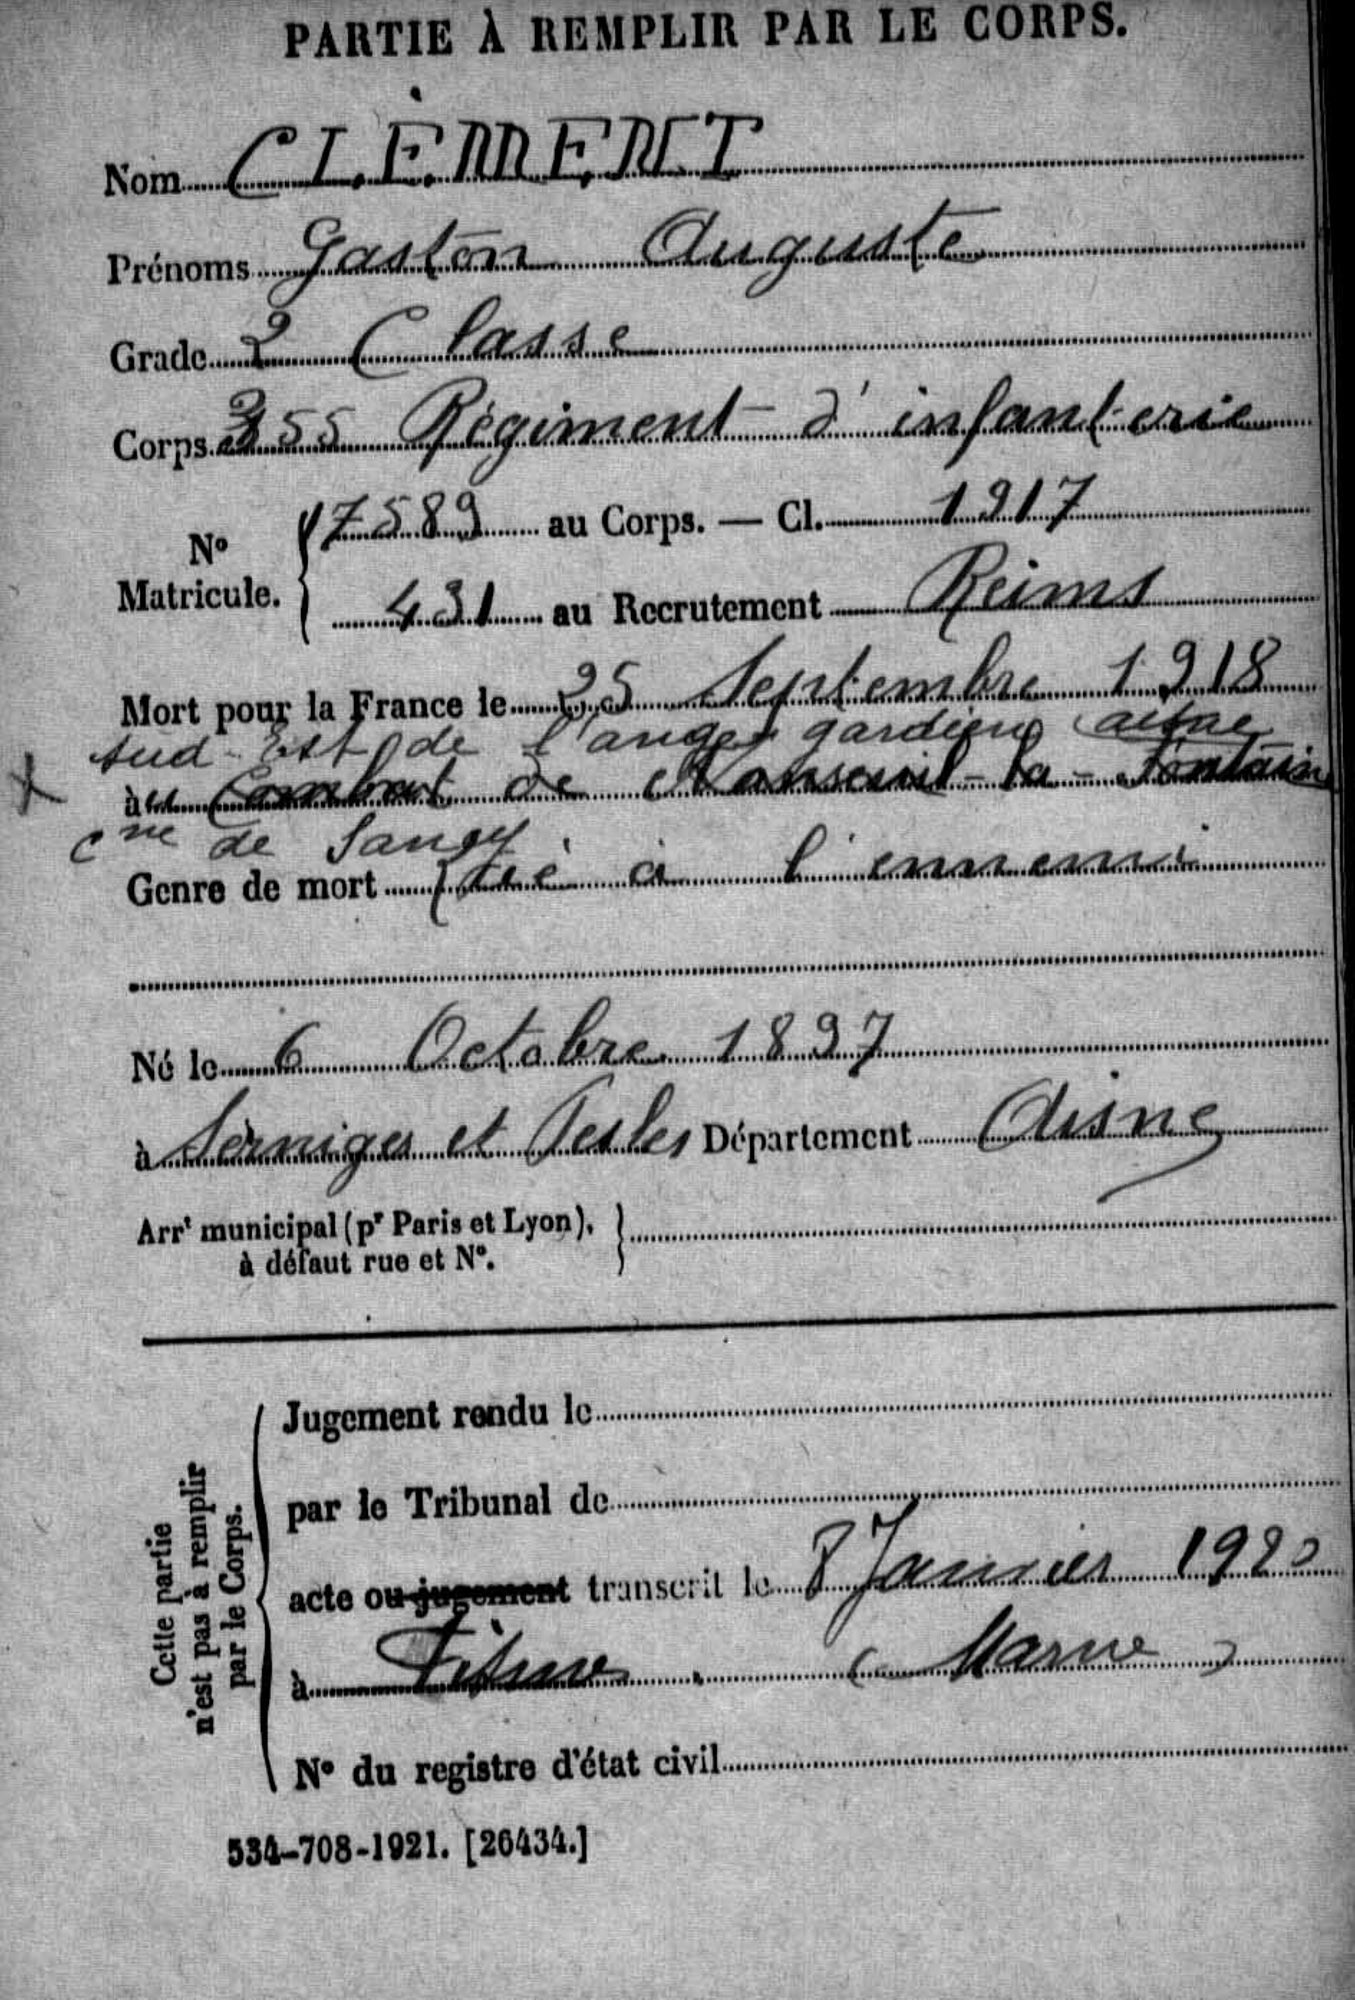 PARTIE À REMPLIR PAR LE CORPS.
Nom CLÉMENT
Prénoms Gaston Auguste
Grade 2 Classe
Corps 355 Régiment d'infanterie
N° Matricule. 17589 au Corps. — Cl. 1917
431 au Recrutement Reims
Mort pour la France le 25 Septembre 1918
Sud-Est de l'ange gardien aisne
à au Combat de la Fontaine
cne de Sancy
Genre de mort Tué à l'ennemi
Né le 6 Octobre 1897
à Serniges et Nesles Département Aisne
Arrt municipal (pr Paris et Lyon),
à défaut rue et N°.
Cette partie
n'est pas à remplir
par le Corps.
Jugement rendu le
par le Tribunal de
acte ou jugement transcrit le 8 Janvier 1920
à Fismes (Marne)
N° du registre d'état civil
534-708-1921. [26434.]